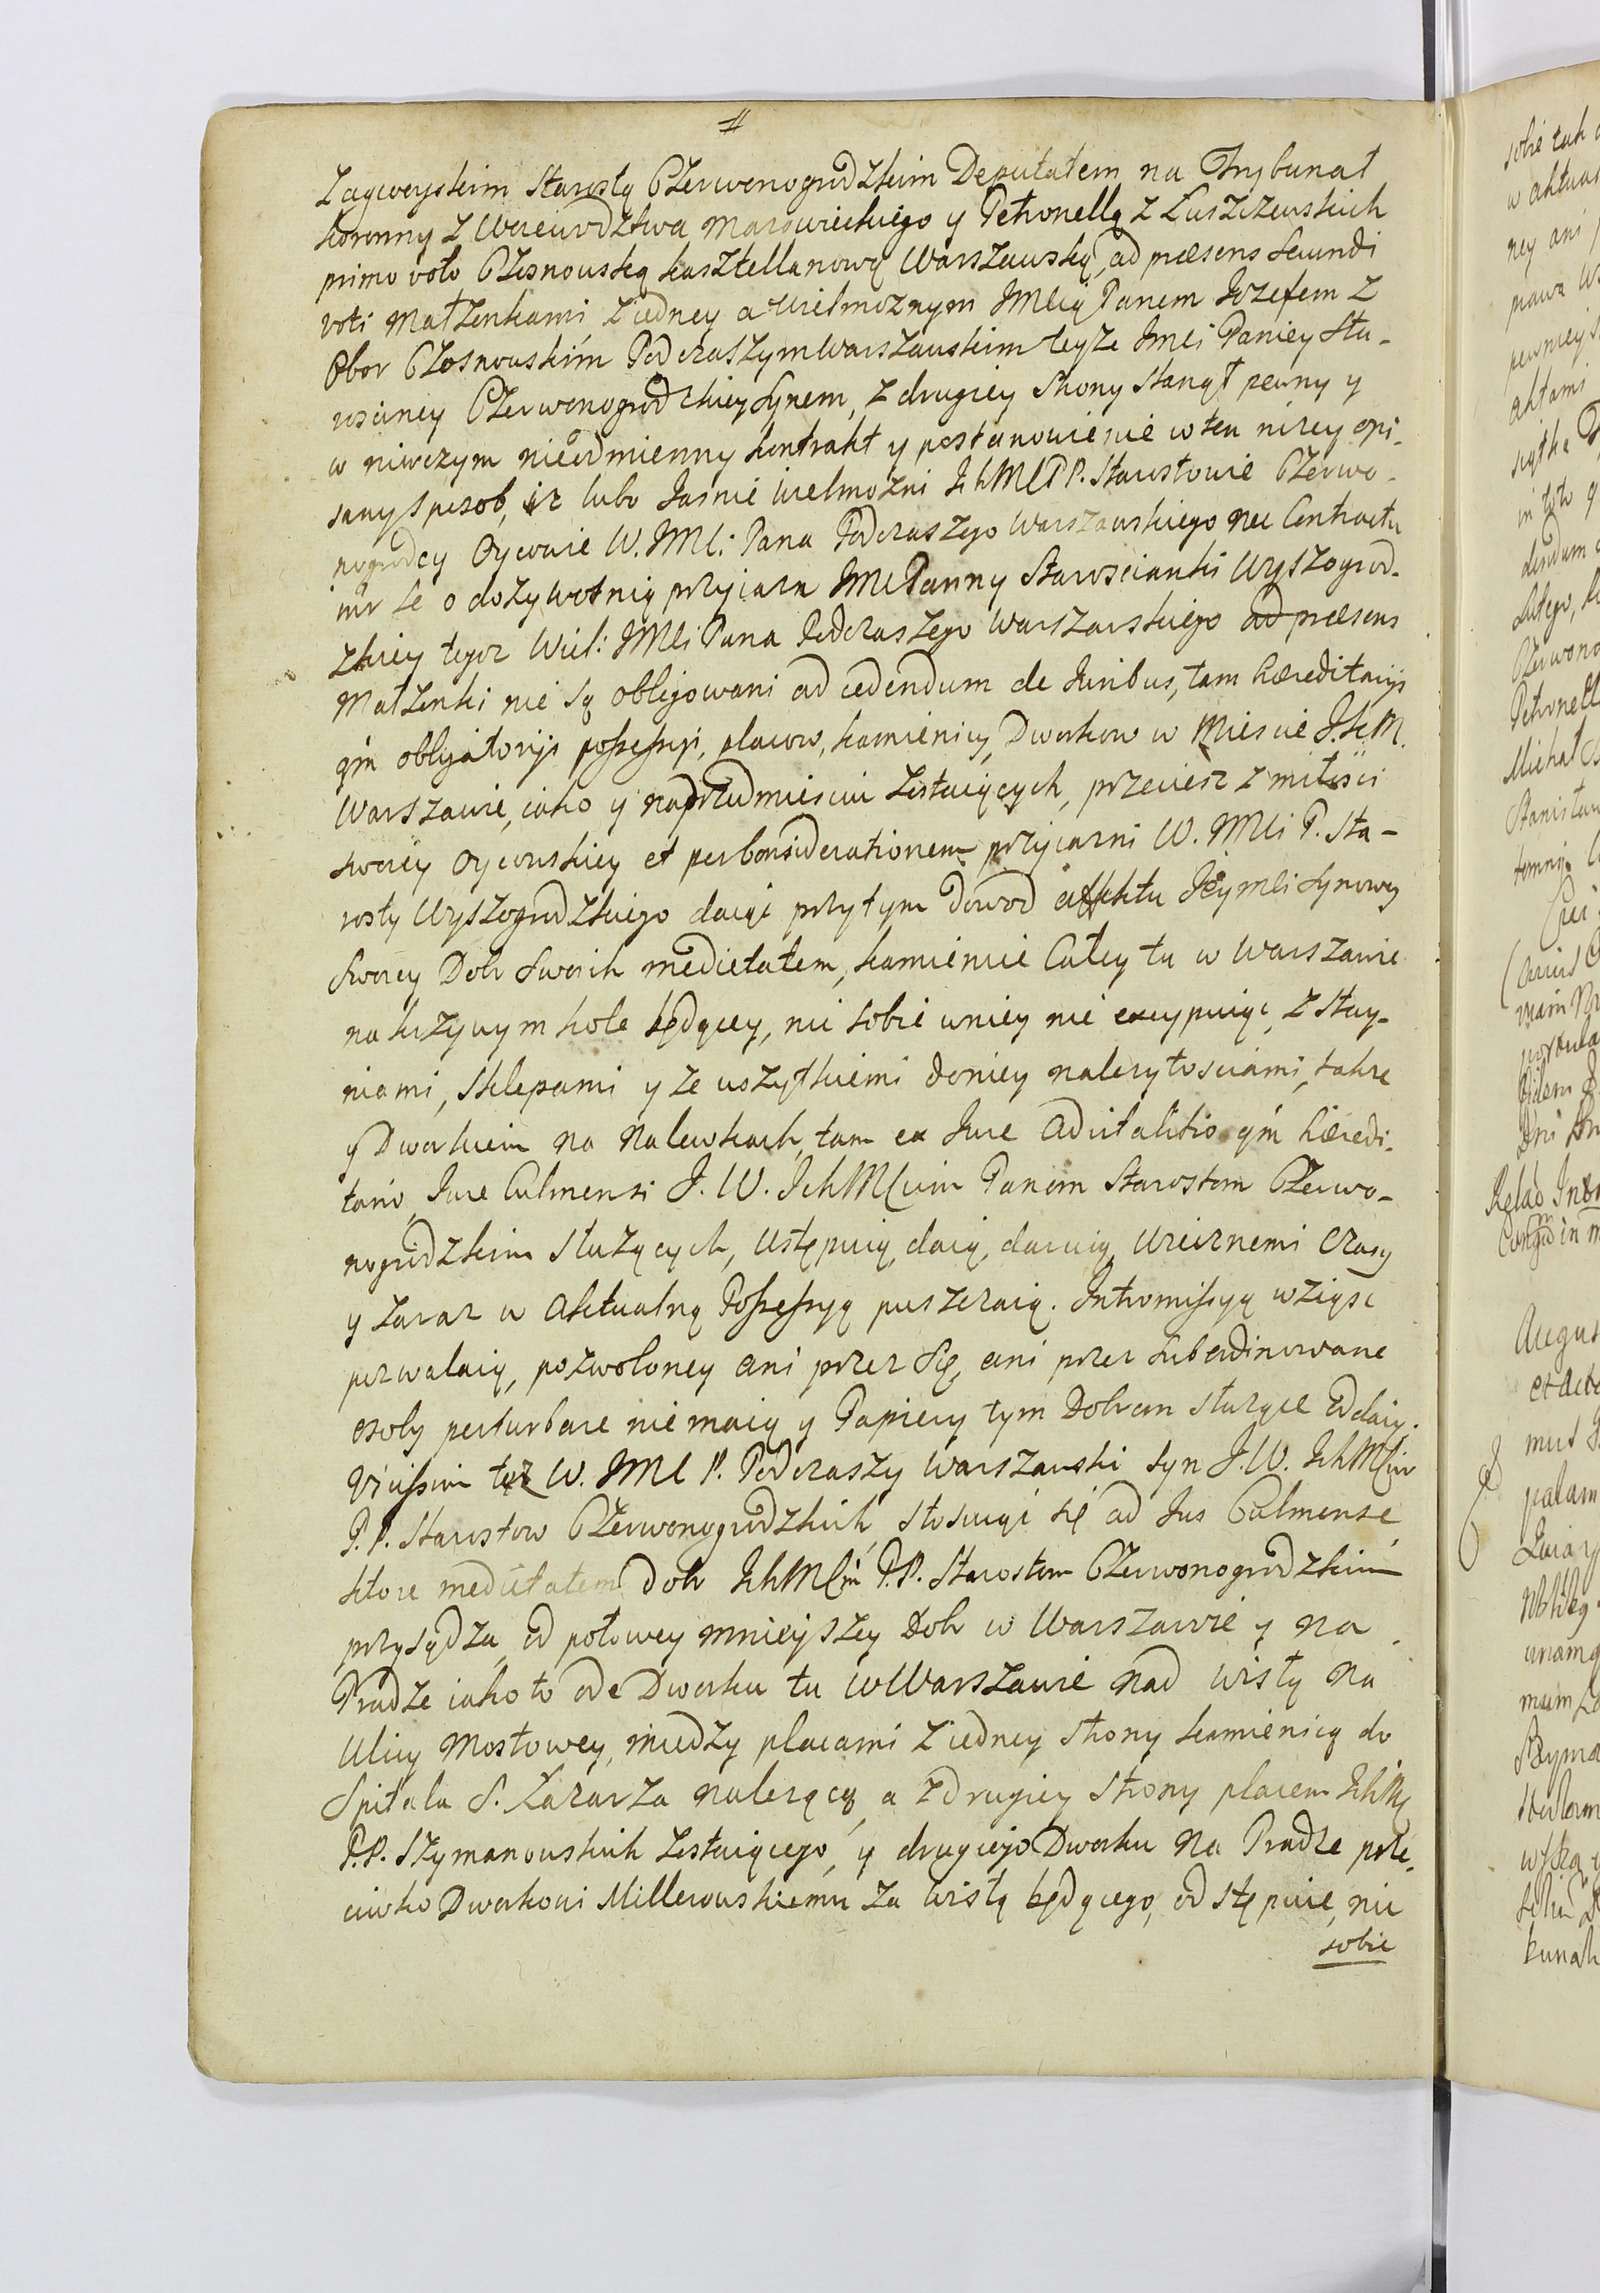 Zagwoyskim Starostą Czerwonogrodzkim Deputatem na Trybunał
koronny z Woiewodztwa Mazowieckiego y Petronellą z Łuszczewskich
primo voto Czosnowską kasztellanową Warszawską, ad præsens secundi
voti Małzenkami, z iedney a Wielmoznym JMCią Panem Jozefem z
Obor Czosnowskim Podczaszym Warszawskim teyze Jmci Paniey Sta-
rosciney Czerwonogrodzkiey Synem, z drugiey Strony stanął pewny y
w niwczym nieodmienny kontrakt y postanowienie w ten nizey opi-
sany sposob, iz lubo Jasnie Wielmozni IchMCPP. Starostowie Czerwo-
nogrodcy Oycowie W. JMCi Pana Podczaszego Warszawskiego nec Contractu
inter se o dozywotnią przyiazn JMCPanny Starościanki Wyszogrod-
zkiey tegoz Wiel: JMCi Pana Podczaszego Warszawskiego ad præsens
Małzenki nie są obligowani ad cedendum de Iuribus, tam hæreditarijs
qm obligatorijs possessyi, placow, kamienicy, Dworkow w Miescie J.K.M.
Warszawie, iako y na przedmiesciu zostaiących, przeciesz z miłości
swoiey Oycowskiey et per Considerationem przyiazni W. JMCi P. Sta-
rosty Wyszogrodzkiego daiąc przytym dowod affektu Jeymci Synowey
Swoiey Dobr Swoich medietatem, kamienice Całey tu w Warszawie
na krzywym kole będącey, nic sobie w niey nie excypuiąc, z stay-
niami, Sklepami y ze wszytkiemi do niey nalezytosciami, takze
y Dworkiem na Nalewkach, tam ex Iure Advitalitio qm hæredi-
tario, Iure Culmensi J. W. IchMCiom Panom Starostom Czerwo-
nogrodzkim słuzących, Ustępuią, daią, daruią, wiecznemi czasy
y zaraz w Aktualną Possessyą puszczaią. Intromissyą wziąsc
pozwalaią, pozwoloney ani przez Się, ani przez subordinowane
osoby perturbare nie maią y Papiery tym Dobrom słuzące oddaią.
Vicissim tez W. JMC P. Podczaszy Warszawski syn J. W. IchMCiow
P.P. Starostow Czerwonogrodzkich, stosuiąc się ad Ius Culmense,
ktore medietatem dobr IchMCiom P.P. Starostom Czerwonogrodzkim
przysądza, od połowey mnieyszey Dobr w Warszawie y na
Pradze iako to od Dworku tu w Warszawie nad wisłą na
Ulicy Mostowey, miedzy placami z iedney strony kamienicą do
Spitala S. Łazarza nalezącą, a z drugiey Strony placem IchMC
P.P. Szymanowskich zostaiącego, y drugiego Dworku na Pradze prze-
ciwko Dworkowi Millerowskiemu za wisłą będącego, odstępuie, nic
sobie